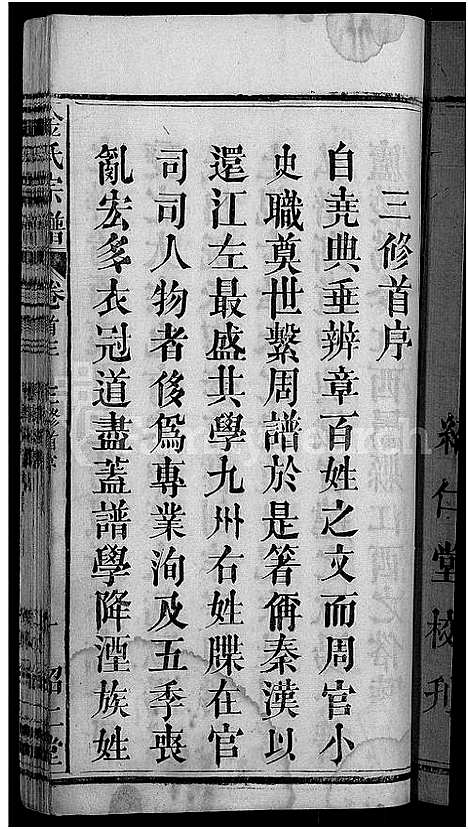 仁堂校刊
三修首序
自堯典垂辨章百姓之文而周官小
史職奠世繫周譜於是箸偁秦漢以
還江左最盛其學九州右姓牒在官
司司人物者侈爲專業洵及五季喪
亂宏多衣冠道盡蓋譜學降湮族姓
金氏宗譜 卷首之 三修首序 堂